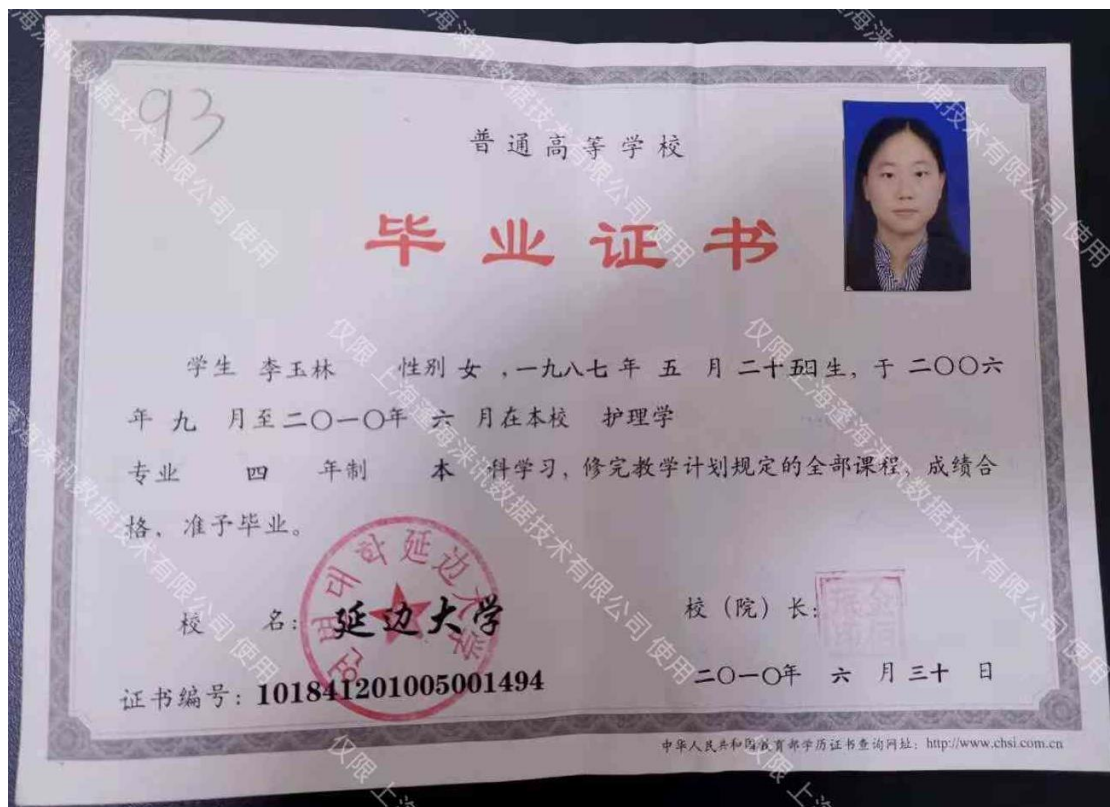 93
普通高等学校
毕业证书
学生 李玉林 性别 女 ,一九八七年 五 月 二十五日生, 于 二〇〇六
年 九 月至二〇一〇年 六 月在本校 护理学
专业 四 年制 本 科学习, 修完教学计划规定的全部课程, 成绩合
格, 准予毕业。
연변대학延边大学
校 名: 延边大学
校（院）长:
证书编号: 101841201005001494
二〇一〇年 六 月 三十 日
中华人民共和国教育部学历证书查询网址: http://www.chsi.com.cn
仅限 上海蓬海涞讯数据技术有限公司 使用